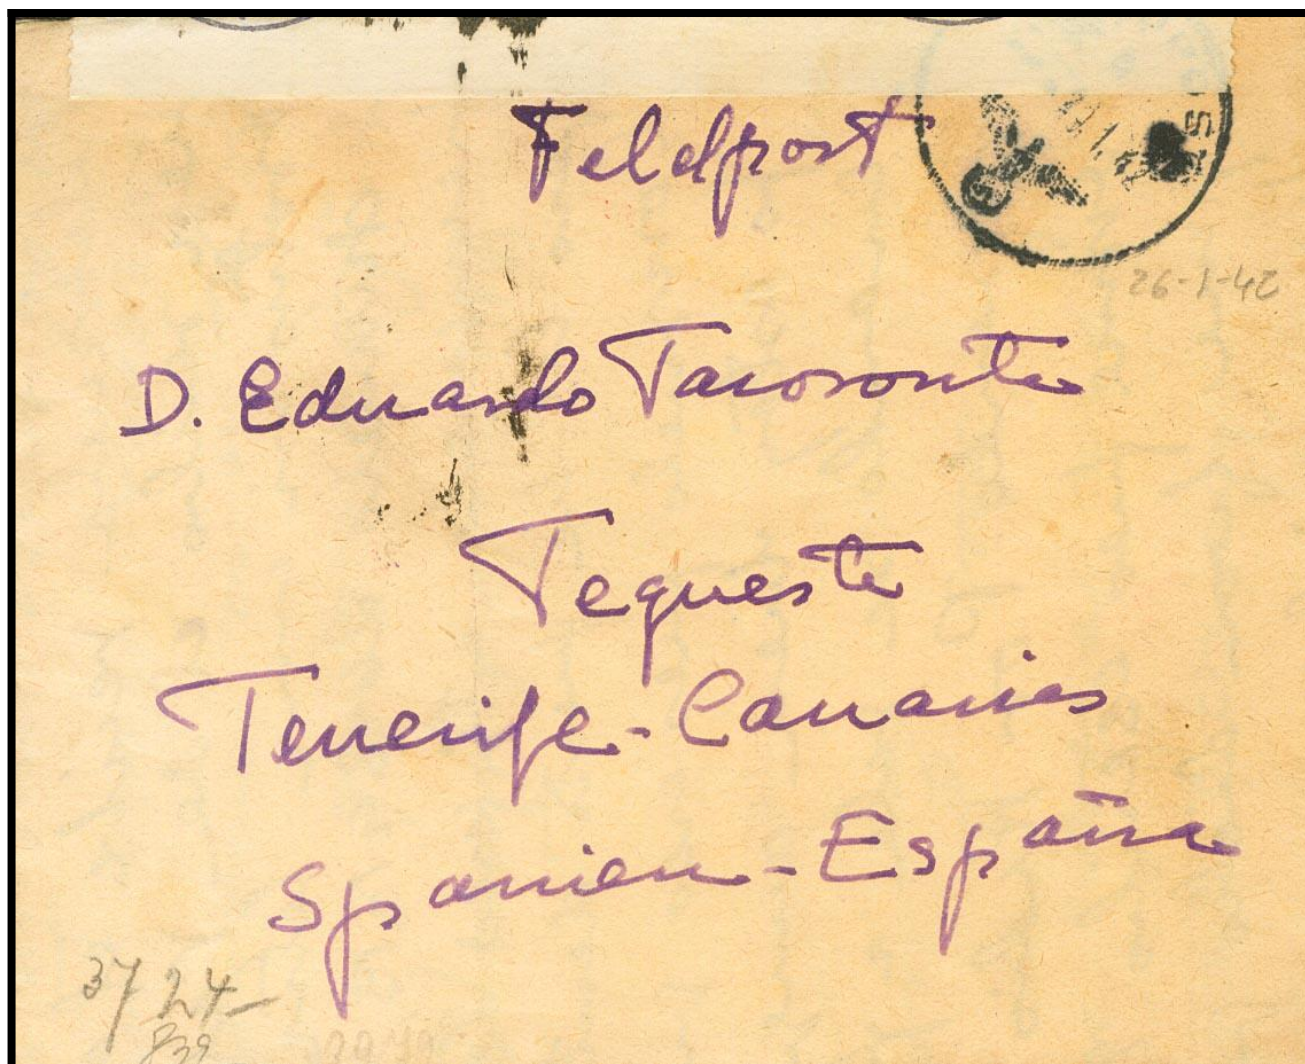 Feldpost
26-1-42
D. Eduardo
Tegueste
Tenerife-Canarias
Spanien-España
37 24-
839